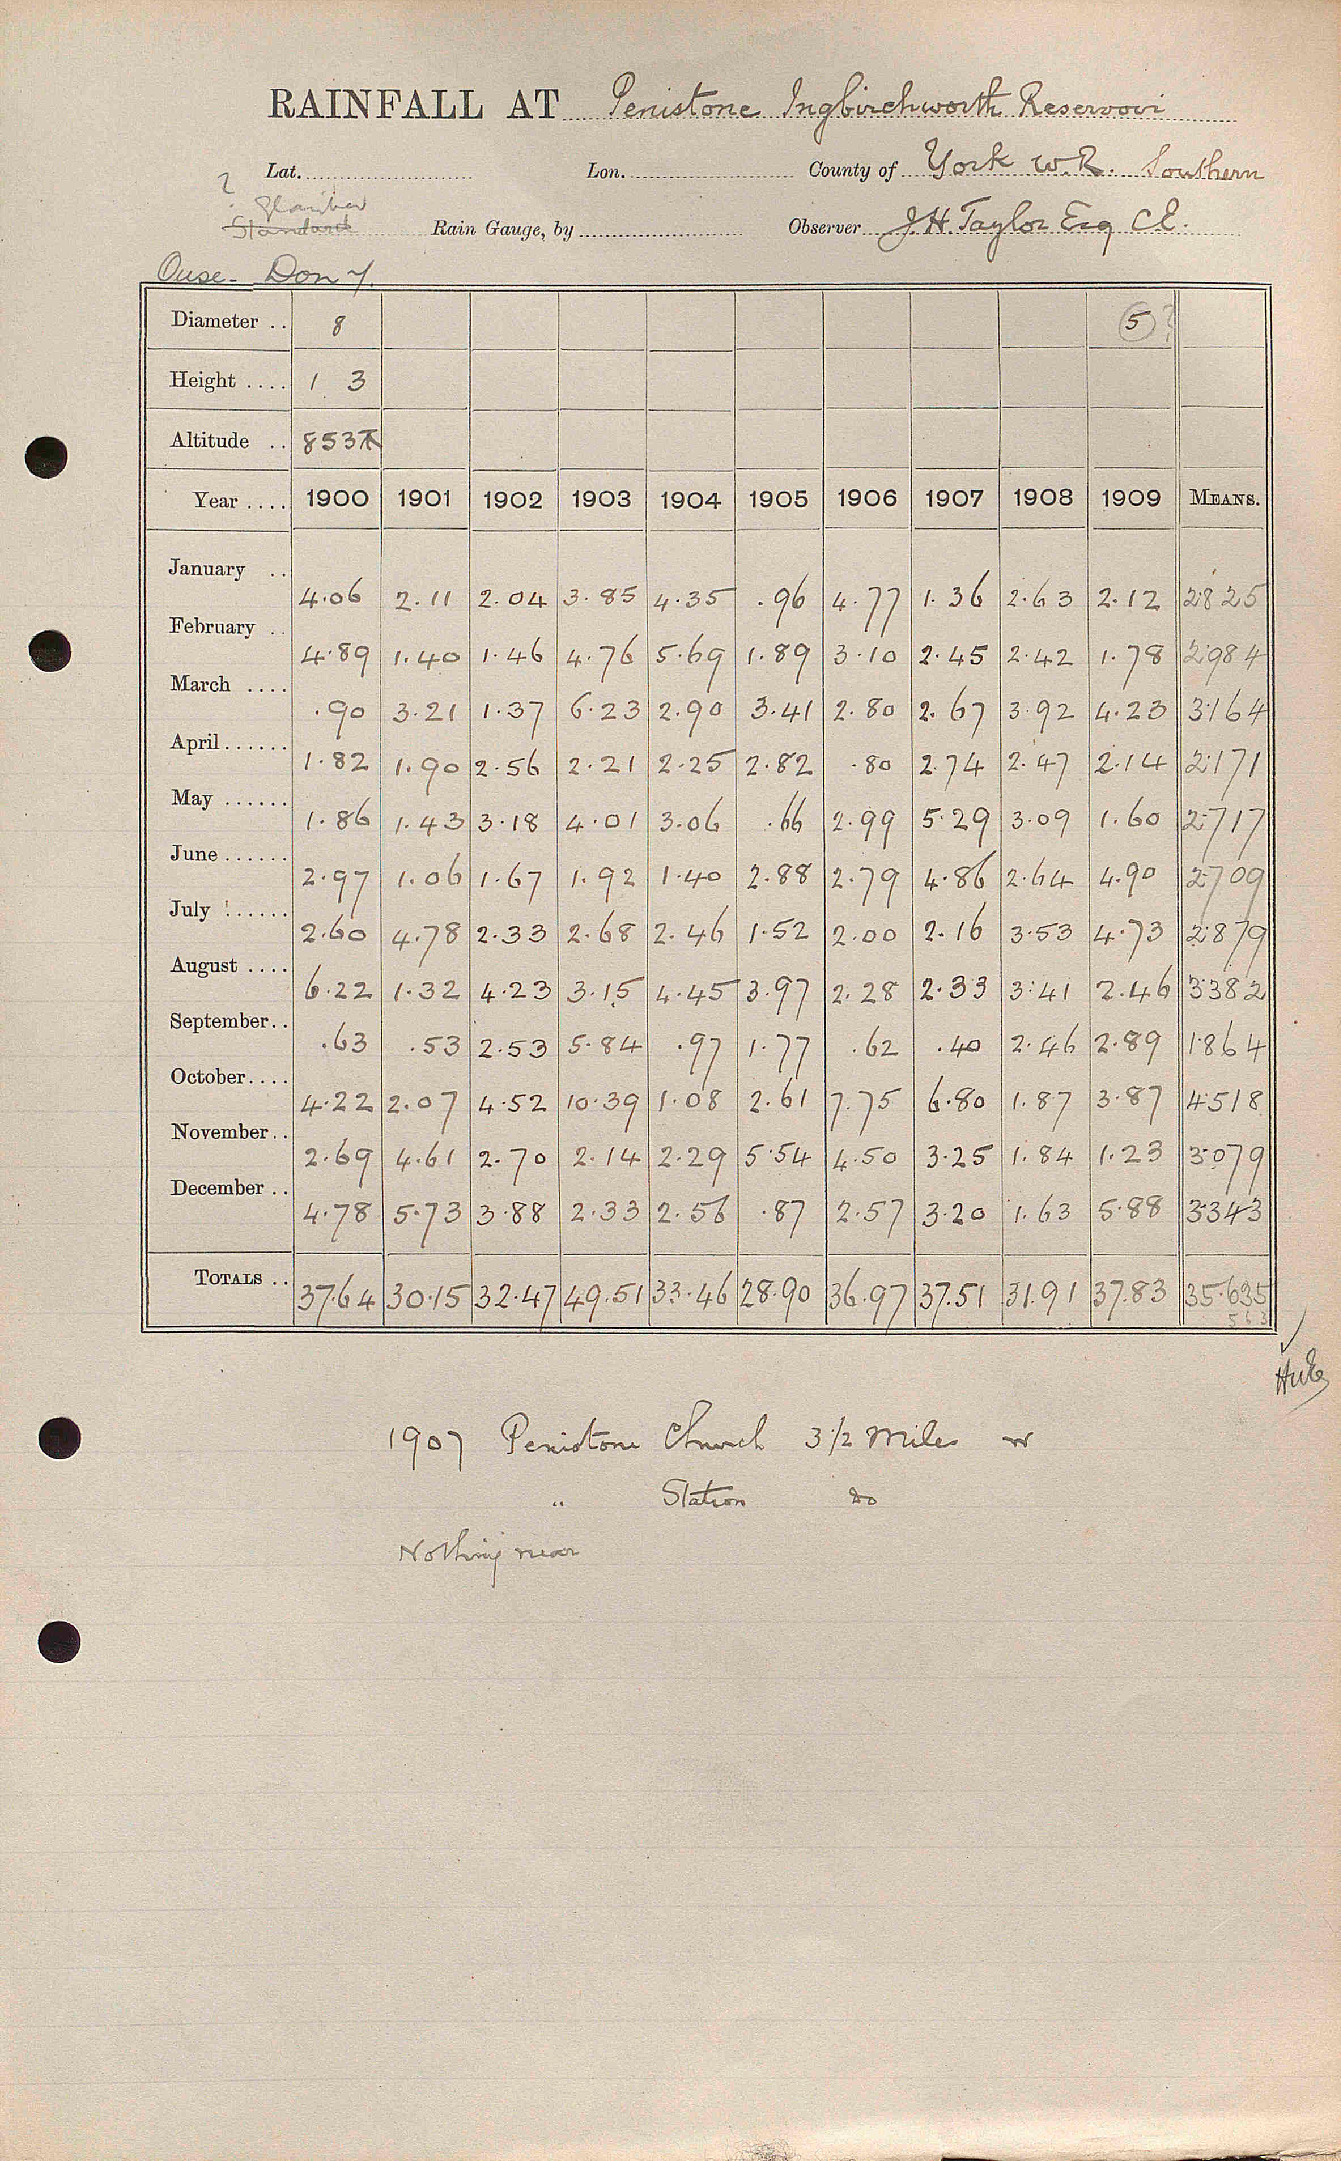 RAINFALL AT Penistone Ingbirchworth Reservoir
Lat. Lon. County of York W.R. Southern
? Glaisher
Standard Rain Gauge, by Observer J.H. Taylor Esq C.E.
Ouse - Don
Diameter .. 8 5 ?
Height .... 1 3
Altitude .. 853
Year .... 1900 1901 1902 1903 1904 1905 1906 1907 1908 1909 MEANS.
January .. 4.06 2.11 2.04 3.85 4.35 .96 4.77 1.36 2.63 2.12 2825
February .. 4.89 1.40 1.46 4.76 5.69 1.89 3.10 2.45 2.42 1.78 2984
March .... .90 3.21 1.37 6.23 2.90 3.41 2.80 2.67 3.92 4.23 3164
April...... 1.82 1.90 2.56 2.21 2.25 2.82 .80 2.74 2.47 2.14 2171
May ...... 1.86 1.43 3.18 4.01 3.06 .66 2.99 5.29 3.09 1.60 2717
June...... 2.97 1.06 1.67 1.92 1.40 2.88 2.79 4.86 2.64 4.90 2709
July ...... 2.60 4.78 2.33 2.68 2.46 1.52 2.00 2.16 3.53 4.73 2879
August .... 6.22 1.32 4.23 3.15 4.45 3.97 2.28 2.33 3.41 2.46 3382
September.. .63 .53 2.53 5.84 .97 1.77 .62 .40 2.46 2.89 1864
October.... 4.22 2.07 4.52 10.39 1.08 2.61 7.75 6.80 1.87 3.87 4518
November.. 2.69 4.61 2.70 2.14 2.29 5.54 4.50 3.25 1.84 1.23 3079
December .. 4.78 5.73 3.88 2.33 2.56 .87 2.57 3.20 1.63 5.88 3343
TOTALS .. 37.64 30.15 32.47 49.51 33.46 28.90 36.97 37.51 31.91 37.83 35.635
563
1907 Penistone Church 3 1/2 Miles W
" Station Do
Nothing near